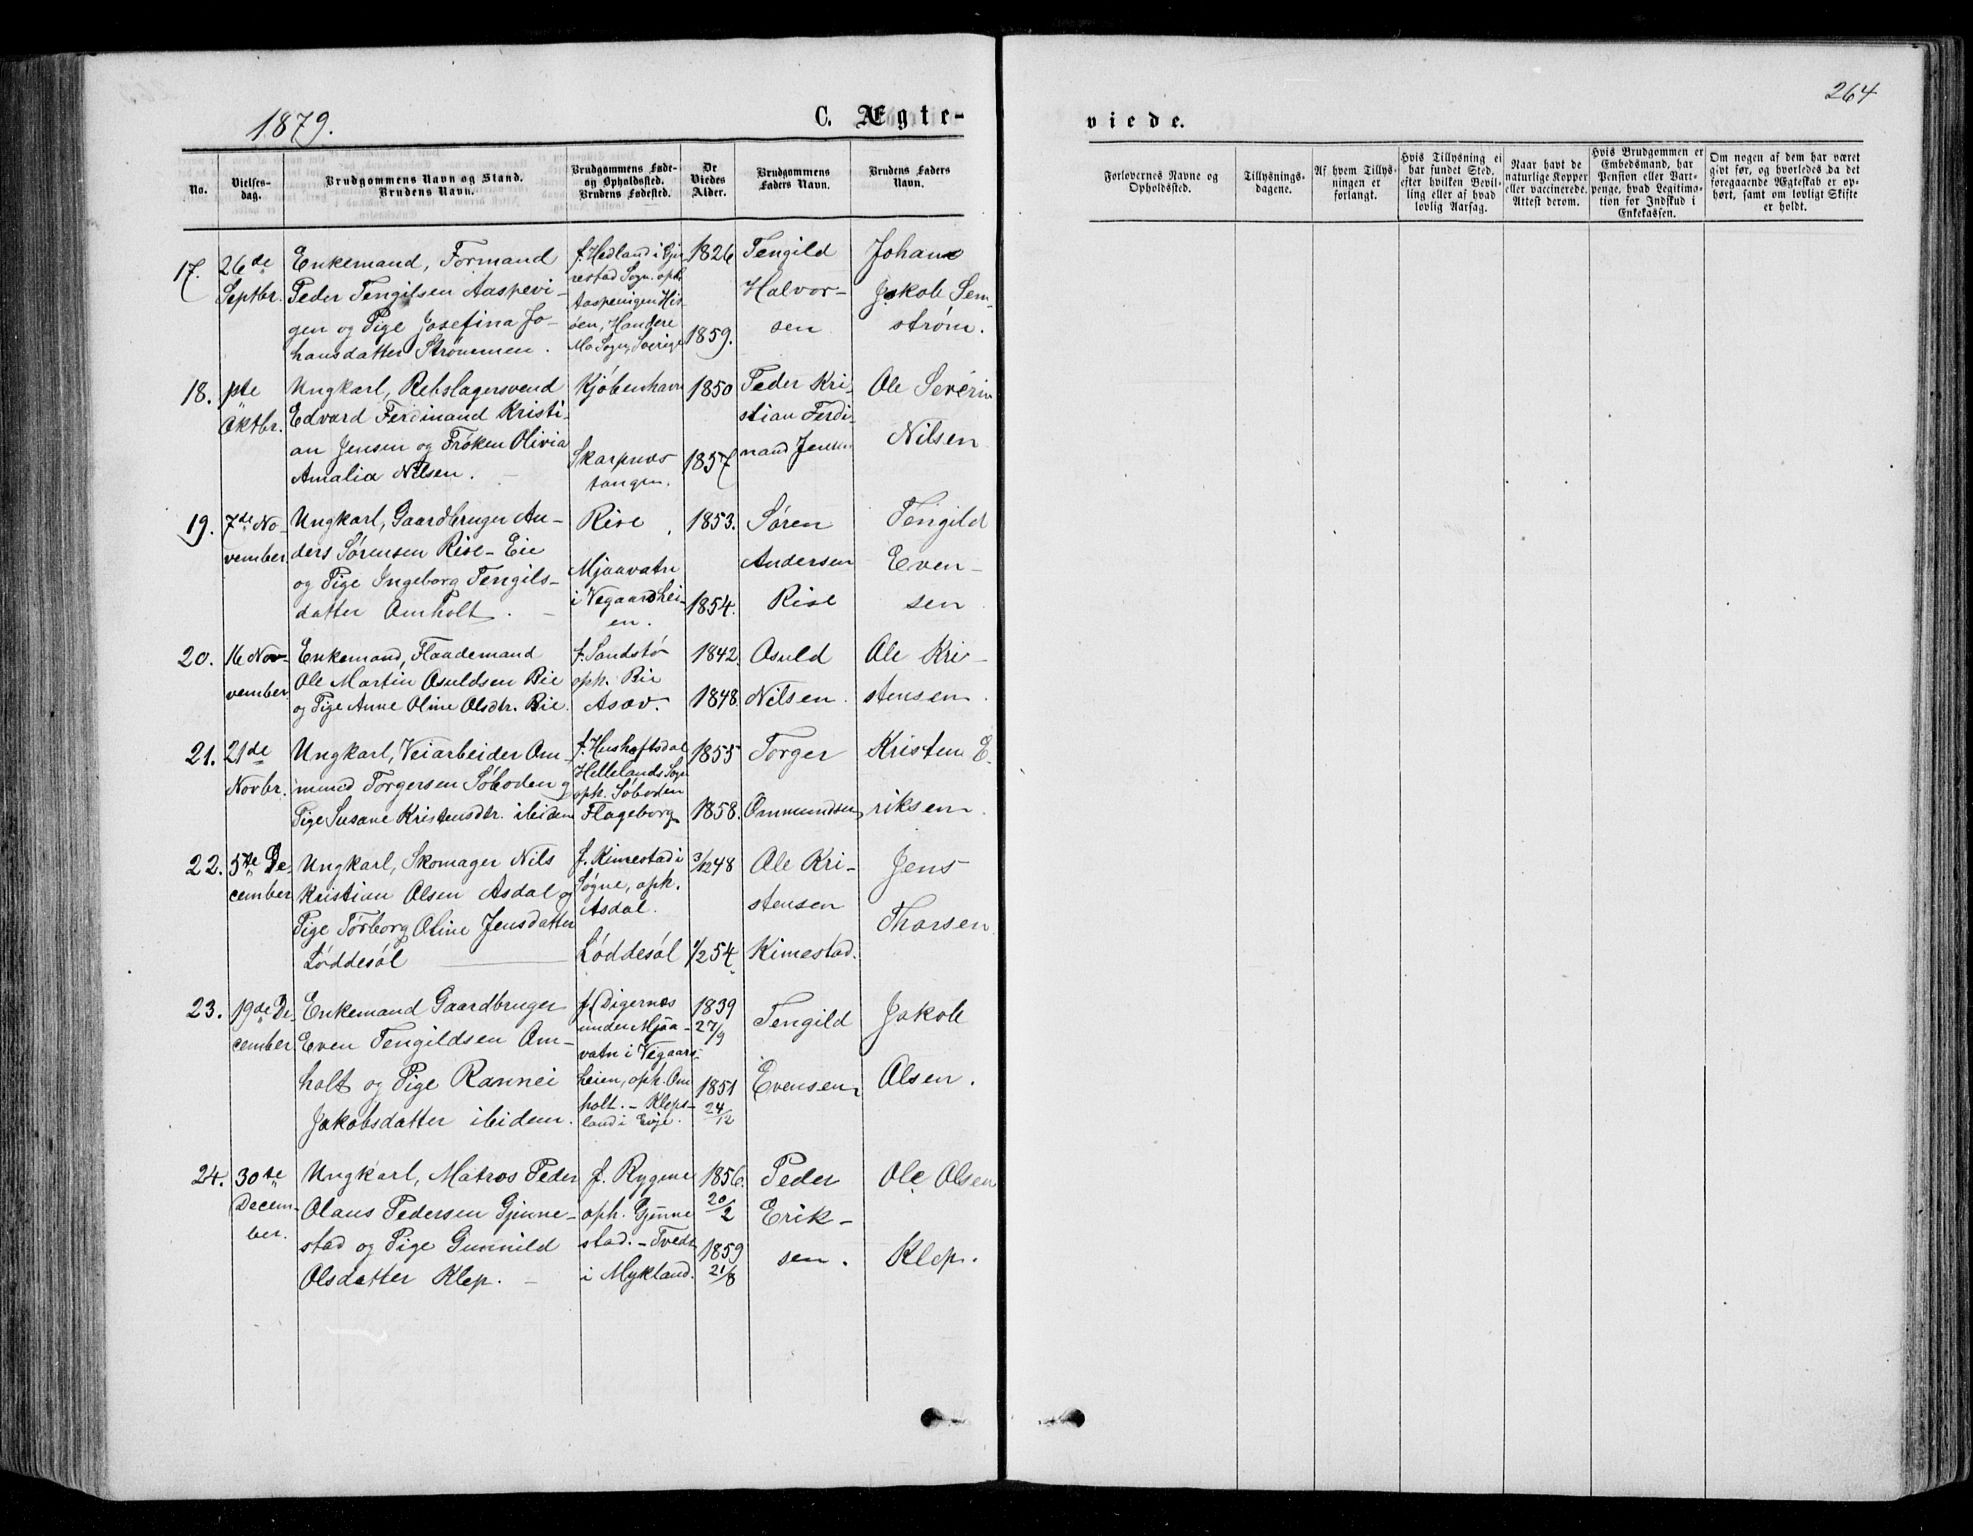 1879.
C. Ægte-
viede.
264
No.
Vielses-
dag.
Brudgommens Navn og Stand.
Brudens Navn.
Brudgommens Føde-
og Opholdssted.
Brudens Fødested.
De
Viedes
Alder.
Brudgommens
Faders Navn.
Brudens Faders
Navn.
Forlovernes Navne og
Opholdssted.
Tillysnings-
dagene.
Af hvem Tillys-
ningen er
forlangt.
Hvis Tillysning ei
har fundet Sted.
efter hvilken Bevil-
ling eller af hvad
lovlig Aarsag.
Naar havt de
naturlige Kopper
eller vaccinerede.
Attest derom.
Hvis Brudgommen er
Embedsmand, har
Pension eller Vart-
penge, hvad Legitima-
tion for Indskud i
Enkekassen.
Om nogen af dem har været
givt før, og hvorledes da det
foregaaende Ægteskab er op-
hørt, samt om lovligt Skifte
er holdt.
17.
26de
Septbr.
Enkemand, Formand
Peder Tengilsen Aaspevi-
gen og Pige Josefina Jo-
hansdatter Strömmen.
f. Hedland i Gjer-
restad Sogn. oph.
Aaspevigen His-
öen,
Mo Sogn, Sverige
1826
1859.
Tengild
Halvor-
sen
Johan
Jakob Sem-
strøm.
18.
Oktbr.
Ungkarl, Rebslagersvend
Edvard Ferdinand Kristi-
an Jensen og Frøken Olivia
Amalia Nilsen.
Kjöbenhavn
Skarpnæs
tangen.
1850
1857
Peder Kri-
stian Ferdi-
nand Jensen
Ole Severin
Nilsen
19.
7de No
vember.
Ungkarl, Gaardbruger An-
ders Sørensen Rise-Eie
og Pige Ingeborg Tengils-
datter Omholt. -
Rise.
Mjaavatn
i Vegaardshei-
en.
1853.
1854.
Søren
Andersen
Rise
Tengild
Even-
sen
20.
16 Nov-
vember
Enkemand, Flaademand
Ole Martin Osuldsen Bie
og Pige Anne Oline Olsdtr. Bie.
f. Sandstø
oph. Bie
Asav.
1842.
1848.
Osuld
Nilsen.
Ole Kri-
stensen.
21.
21de
Novbr.
Ungkarl, Veiarbeider Om-
mund Torgersen Söboden og
Pige Susane Kristensdtr. ibidem
f. Hushoftsdal
Hellelands Sogn
oph. Söboden
Flageborg
1855
1858.
Torger
Ommundsen
Kristen E-
riksen.
22.
5te De-
cember
Ungkarl, Skomager Nils
Kristian Olsen Asdal og
Pige Torborg Oline Jensdatter
Løddesøl
f. Kimestad i
Søgne, oph.
Asdal.
Løddesøl
3/12 48
1/2 54
Ole Kri-
stensen
Kimestad.
Jens
Tharsen
23.
19de De
cember
Enkemand Gaardbruger
Even Tengildsen Om-
holt og Pige Rannei
Jakobsdatter ibidem.
f. Digernæs
under Mjaa-
vatn i Vegaars-
heien, oph. Om
holt. - Kleps-
land i Evje.
1839
27/9
1851
24/12
Tengild
Evensen
Jakob
Olsen.
24.
30te
Decem-
ber.
Ungkarl, Matros Peder
Olaus Pedersen Gjenne-
stad og Pige Gunnild
Olsdatter Klep. -
f. Rygene
oph. Gjenne
stad. - Tvedt
i Mykland.
1856.
20/2
1859
21/8
Peder
Erik-
sen.
Ole Olsen
Klep.